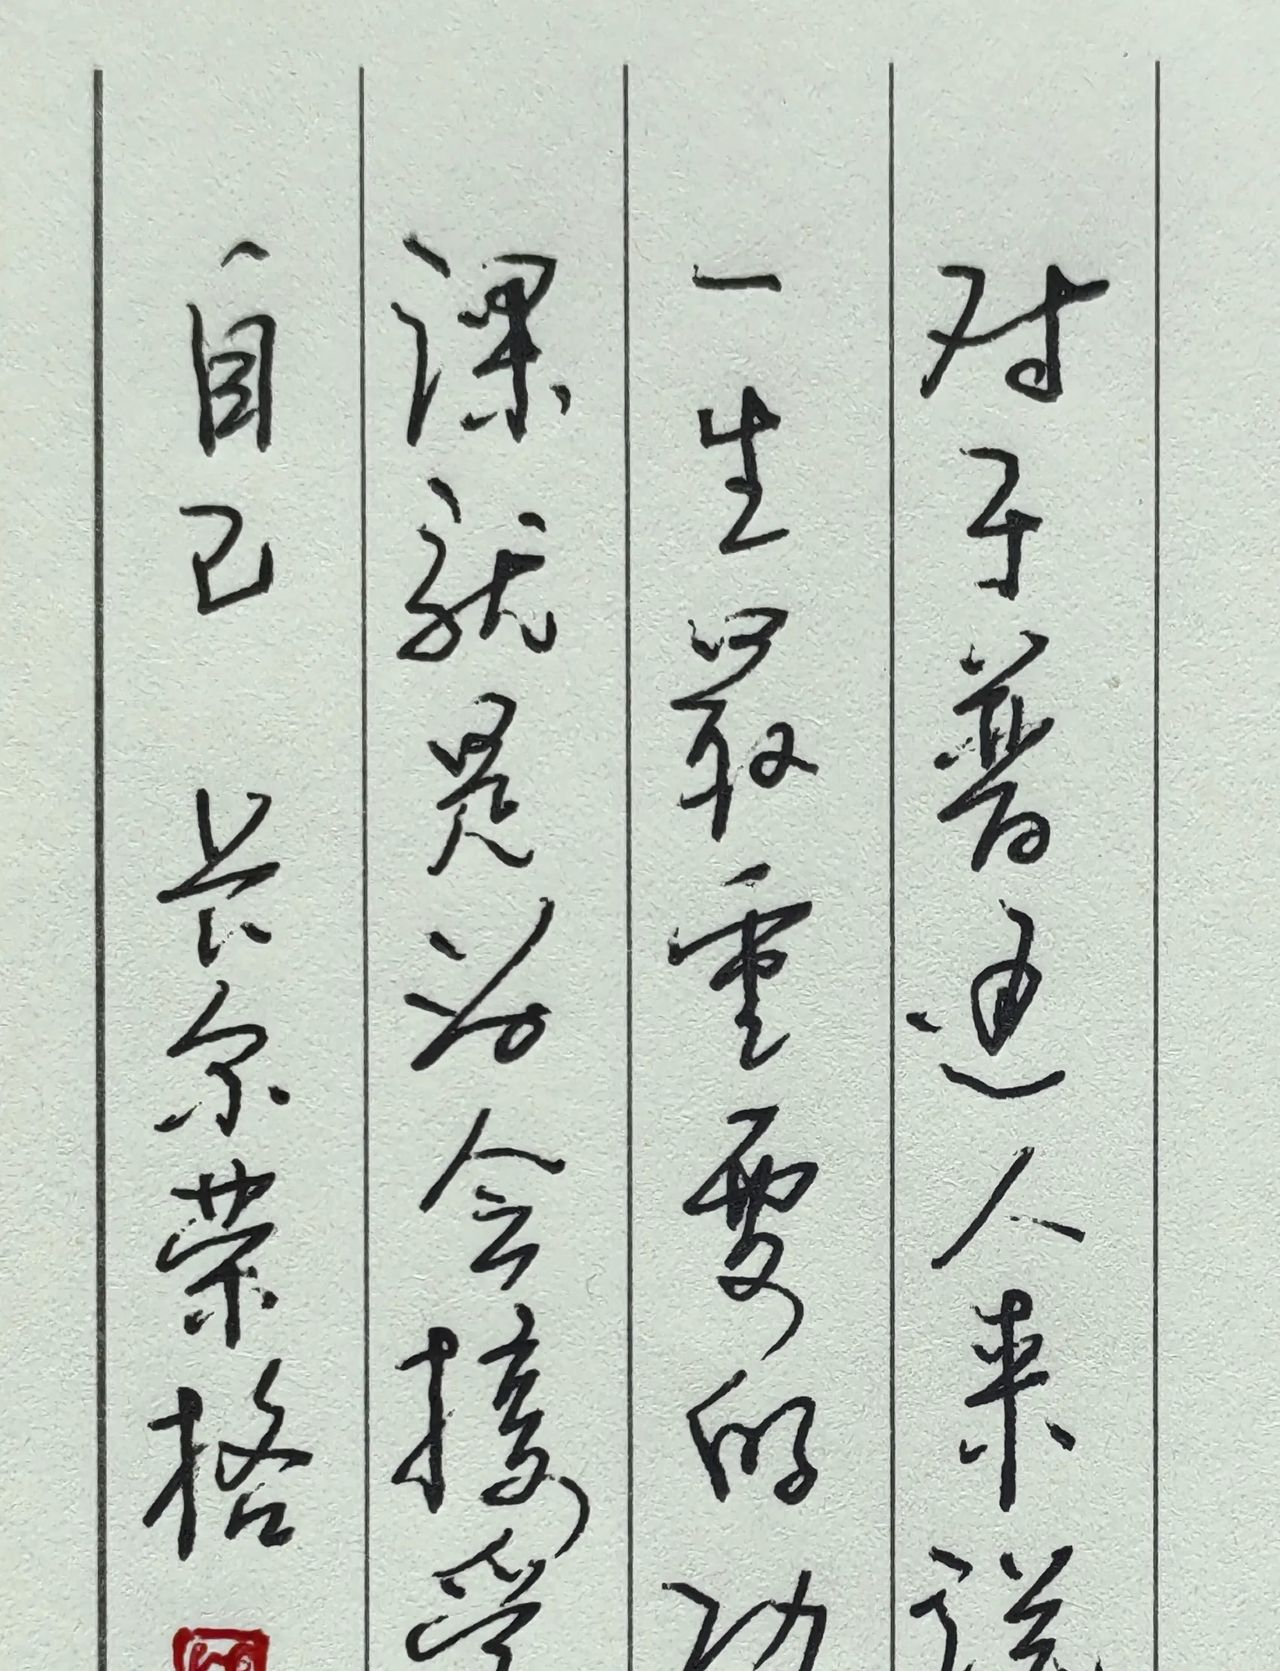 对于普通人来说
一生最重要的功
课就是学会接受
自己 卡尔荣格